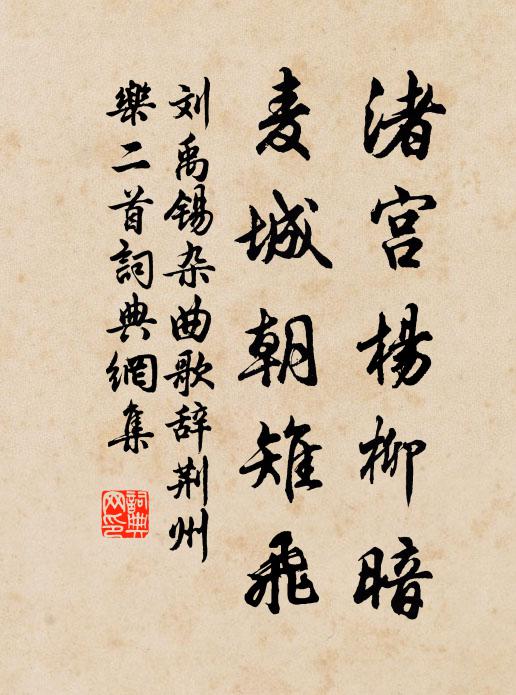 渚宫楊柳暗
麦城朝雉飛
刘禹锡杂曲歌辞荆州
樂二首詞典網集
詞典
网印